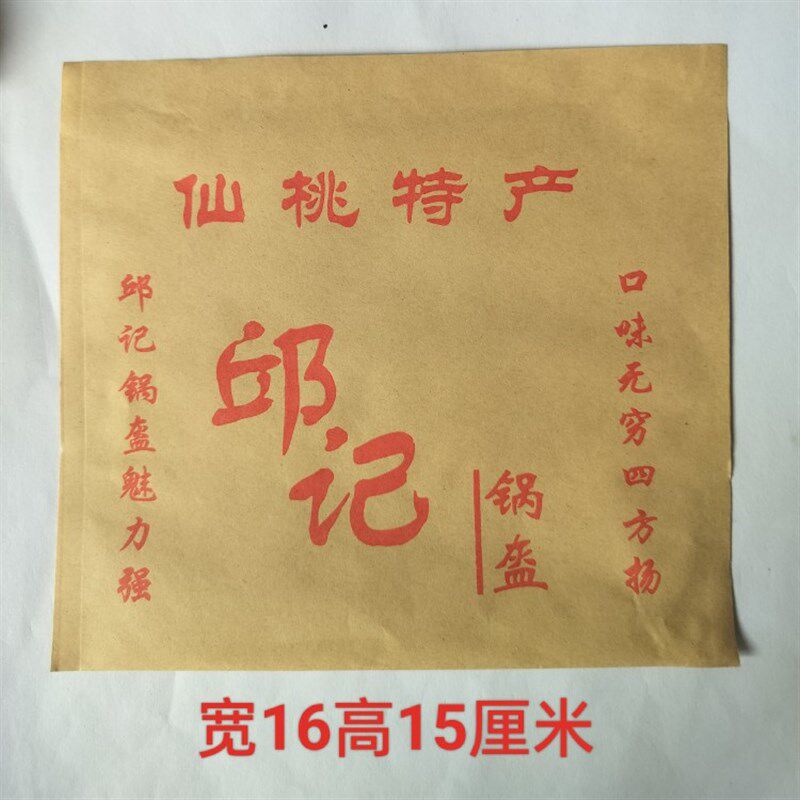 仙桃特产
邱记锅盔魅力强
邱记
锅盔
口味无穷四方扬
宽16高15厘米